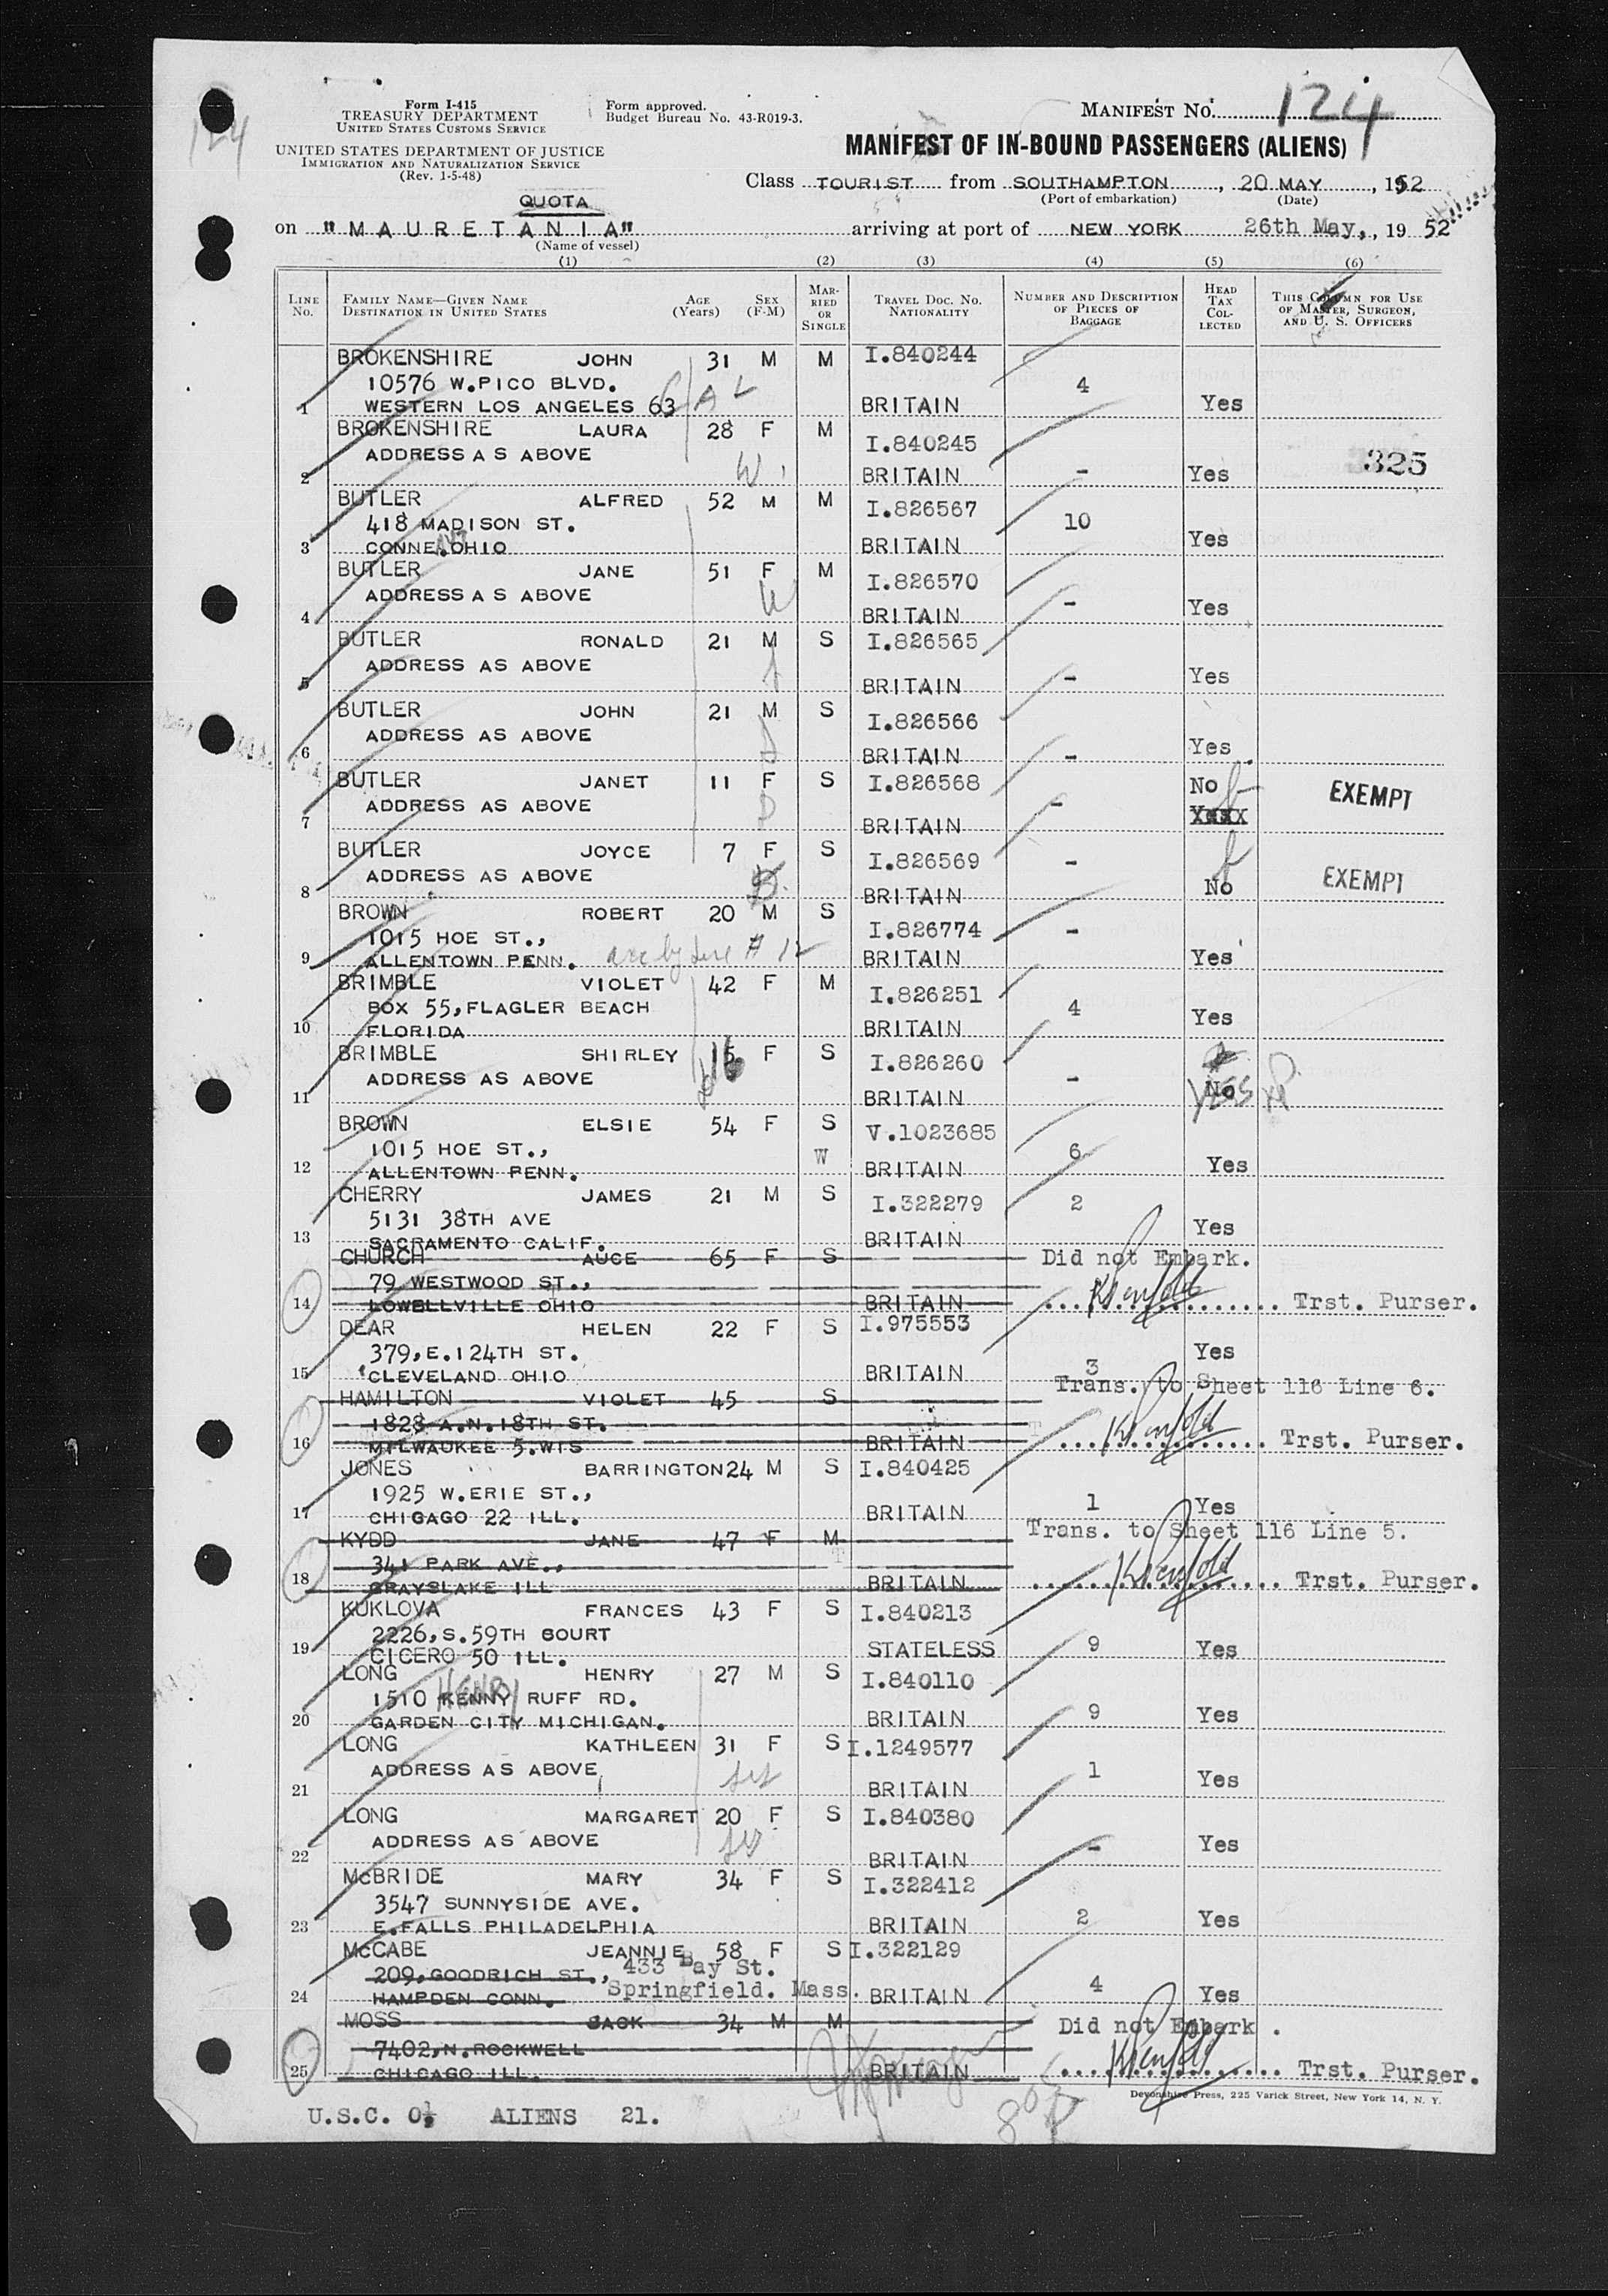 124
Form I-415
TREASURY DEPARTMENT
UNITED STATES CUSTOMS SERVICE
UNITED STATES DEPARTMENT OF JUSTICE
IMMIGRATION AND NATURALIZATION SERVICE
(Rev. 1-5-48)
Form approved.
Budget Bureau No. 43-R019-3.
MANIFEST NO. 124
MANIFEST OF IN-BOUND PASSENGERS (ALIENS)
Class TOURIST from SOUTHAMPTON, 20 MAY, 1952
(Port of embarkation) (Date)
QUOTA
on "MAURETANIA" arriving at port of NEW YORK 26th May, 1952
(Name of vessel)
(1) (2) (3) (4) (5) (6)
LINE No. FAMILY NAME—GIVEN NAME DESTINATION IN UNITED STATES AGE (Years) SEX (F-M) MARRIED OR SINGLE TRAVEL DOC. NO. NATIONALITY NUMBER AND DESCRIPTION OF PIECES OF BAGGAGE HEAD TAX COLLECTED THIS COLUMN FOR USE OF MASTER, SURGEON, AND U. S. OFFICERS
BROKENSHIRE JOHN 31 M M I.840244
10576 W.PICO BLVD. 4
1 WESTERN LOS ANGELES 63 CAL BRITAIN Yes
BROKENSHIRE LAURA 28 F M I.840245
ADDRESS A S ABOVE 325
2 W BRITAIN - Yes
BUTLER ALFRED 52 M M I.826567
418 MADISON ST. 10
3 CONNE.OHIO BRITAIN Yes
BUTLER JANE 51 F M I.826570
ADDRESS A S ABOVE W
4 BRITAIN - Yes
BUTLER RONALD 21 M S I.826565
ADDRESS AS ABOVE
5 BRITAIN - Yes
BUTLER JOHN 21 M S I.826566
ADDRESS AS ABOVE
6 BRITAIN - Yes
BUTLER JANET 11 F S I.826568 No EXEMPT
ADDRESS AS ABOVE D - Yes
7 BRITAIN
BUTLER JOYCE 7 F S I.826569
ADDRESS AS ABOVE D. - No EXEMPT
8 BRITAIN
BROWN ROBERT 20 M S I.826774
1015 HOE ST., -
9 ALLENTOWN PENN. acc by Line # 12 BRITAIN Yes
BRIMBLE VIOLET 42 F M I.826251
BOX 55, FLAGLER BEACH 4
10 FLORIDA BRITAIN Yes
BRIMBLE SHIRLEY 16 F S I.826260
ADDRESS AS ABOVE - No YES
11 BRITAIN
BROWN ELSIE 54 F S V.1023685
1015 HOE ST., W 6
12 ALLENTOWN PENN. BRITAIN Yes
CHERRY JAMES 21 M S I.322279
5131 38TH AVE 2
13 SACRAMENTO CALIF. BRITAIN Yes
CHURCH AUCE 65 F S Did not Embark.
79 WESTWOOD ST.,
14 LOWELLVILLE OHIO BRITAIN Trst. Purser.
DEAR HELEN 22 F S I.975553
379, E.124TH ST. Yes
15 CLEVELAND OHIO BRITAIN 3
HAMILTON VIOLET 45 S Trans. to Sheet 116 Line 6.
1828 A.N.18TH ST.
16 MILWAUKEE 5.WIS BRITAIN Trst. Purser.
JONES BARRINGTON 24 M S I.840425
1925 W.ERIE ST.,
17 CHIGAGO 22 ILL. BRITAIN 1 Yes
KYDD JANE 47 F M Trans. to Sheet 116 Line 5.
341 PARK AVE.,
18 GRAYSLAKE ILL BRITAIN Trst. Purser.
KUKLOVA FRANCES 43 F S I.840213
2226, S.59TH COURT
19 CICERO 50 ILL. STATELESS 9 Yes
LONG HENRY 27 M S I.840110
1510 KENNY HENRY RUFF RD.
20 GARDEN CITY MICHIGAN. BRITAIN 9 Yes
LONG KATHLEEN 31 F S I.1249577
ADDRESS AS ABOVE
21 BRITAIN 1 Yes
LONG MARGARET 20 F S I.840380
ADDRESS AS ABOVE
22 BRITAIN - Yes
McBRIDE MARY 34 F S I.322412
3547 SUNNYSIDE AVE.
23 E.FALLS PHILADELPHIA BRITAIN 2 Yes
McCABE JEANNIE 58 F S I.322129
209, GOODRICH ST., 433 Bay St.
24 HAMPDEN CONN. Springfield. Mass. BRITAIN 4 Yes
MOSS JACK 34 M M Did not Embark.
7402, N.ROCKWELL
25 CHICAGO ILL. BRITAIN Trst. Purser.
Devonshire Press, 225 Varick Street, New York 14, N. Y.
U.S.C. 0 ALIENS 21.